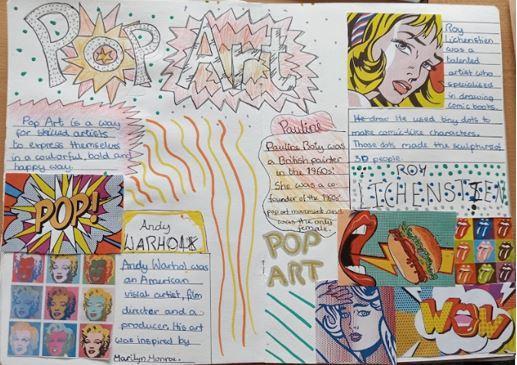 POP Art
Pop Art is a way
for skilled artists
to express themselves
in a colourful, bold and
happy way.
POP!
Andy
WARHOL
Andy Warhol was
an American
visual artist, film
director and a
producer. His art
was inspired by
Marilyn Monroe.
Pauline
Pauline Boty was
a British painter
in the 1960s'
She was a co-
founder of the 1960s'
pop art movement and
was the only
female.
POP
ART
Roy
Lichenstien
was a
talented
artist who
specialised
in drawing
comic books.
He draw He used tiny dots to
make comic-like characters.
Those dots made the sculptures of
3D people.
ROY
LICHENSTIEN
WOW